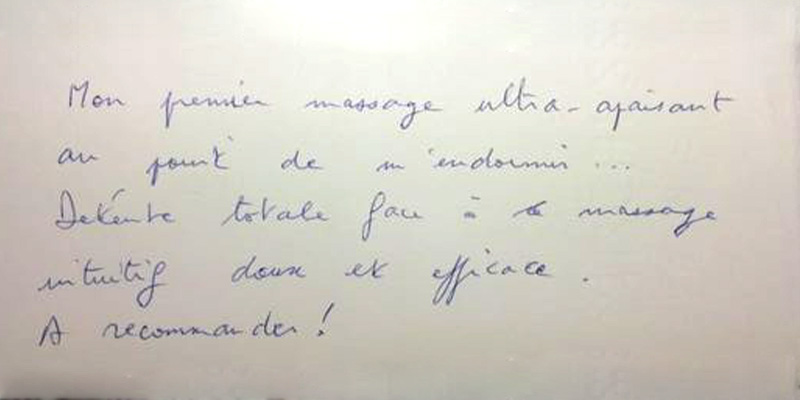 Mon premier massage ultra-apaisant
au point de m'endormir ...
Détente totale face à ce massage
intuitif doux et efficace.
A recommander !